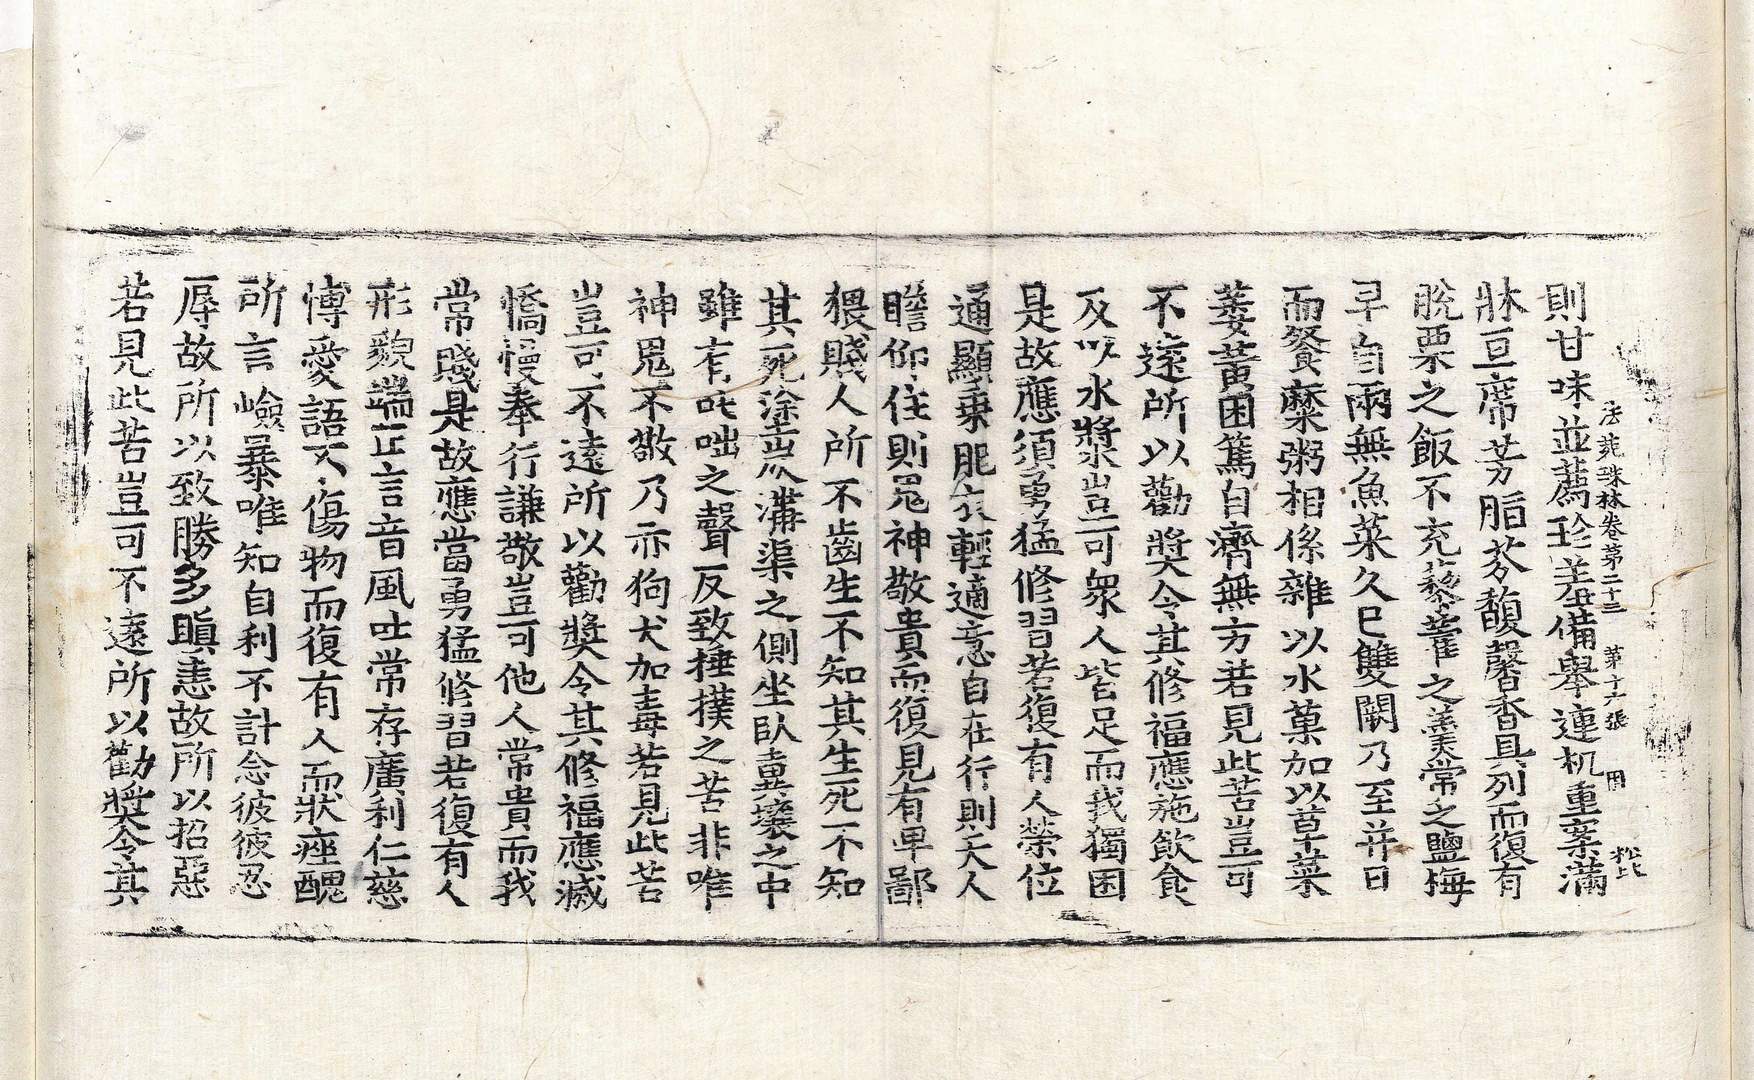 法苑珠林卷第二十三 第十六張 周 松比
則甘味並薦珍羞備舉連机重案滿
牀亘席芳脂芬馥馨香具列而復有
脫粟之飯不充藜藿之羹常乏鹽梅
早自兩無魚菜久已雙闕乃至并日
而餐糜粥相係雜以水菓加以草菜
萎黃困篤自濟無方若見此苦豈可
不遠所以勸獎令其修福應施飲食
及以水漿豈可眾人皆足而我獨困
是故應須勇猛修習若復有人榮位
通顯乗肥衣輕適意自在行則天人
瞻仰住則鬼神敬貴而復見有卑鄙
猥賤人所不齒生不知其生死不知
其死塗炭溝渠之側坐臥糞壤之中
雖有叱咄之聲反致捶撲之苦非唯
神鬼不敬乃亦狗犬加毒若見此苦
豈可不遠所以勸獎令其修福應滅
憍慢奉行謙敬豈可他人常貴而我
常賤是故應當勇猛修習若復有人
形貌端正言音風吐常存廣利仁慈
博愛語不傷物而復有人而狀痤醜
所言嶮暴唯知自利不計念彼彼忍
辱故所以致勝多瞋恚故所以招惡
若見此苦豈可不遠所以勸獎令其